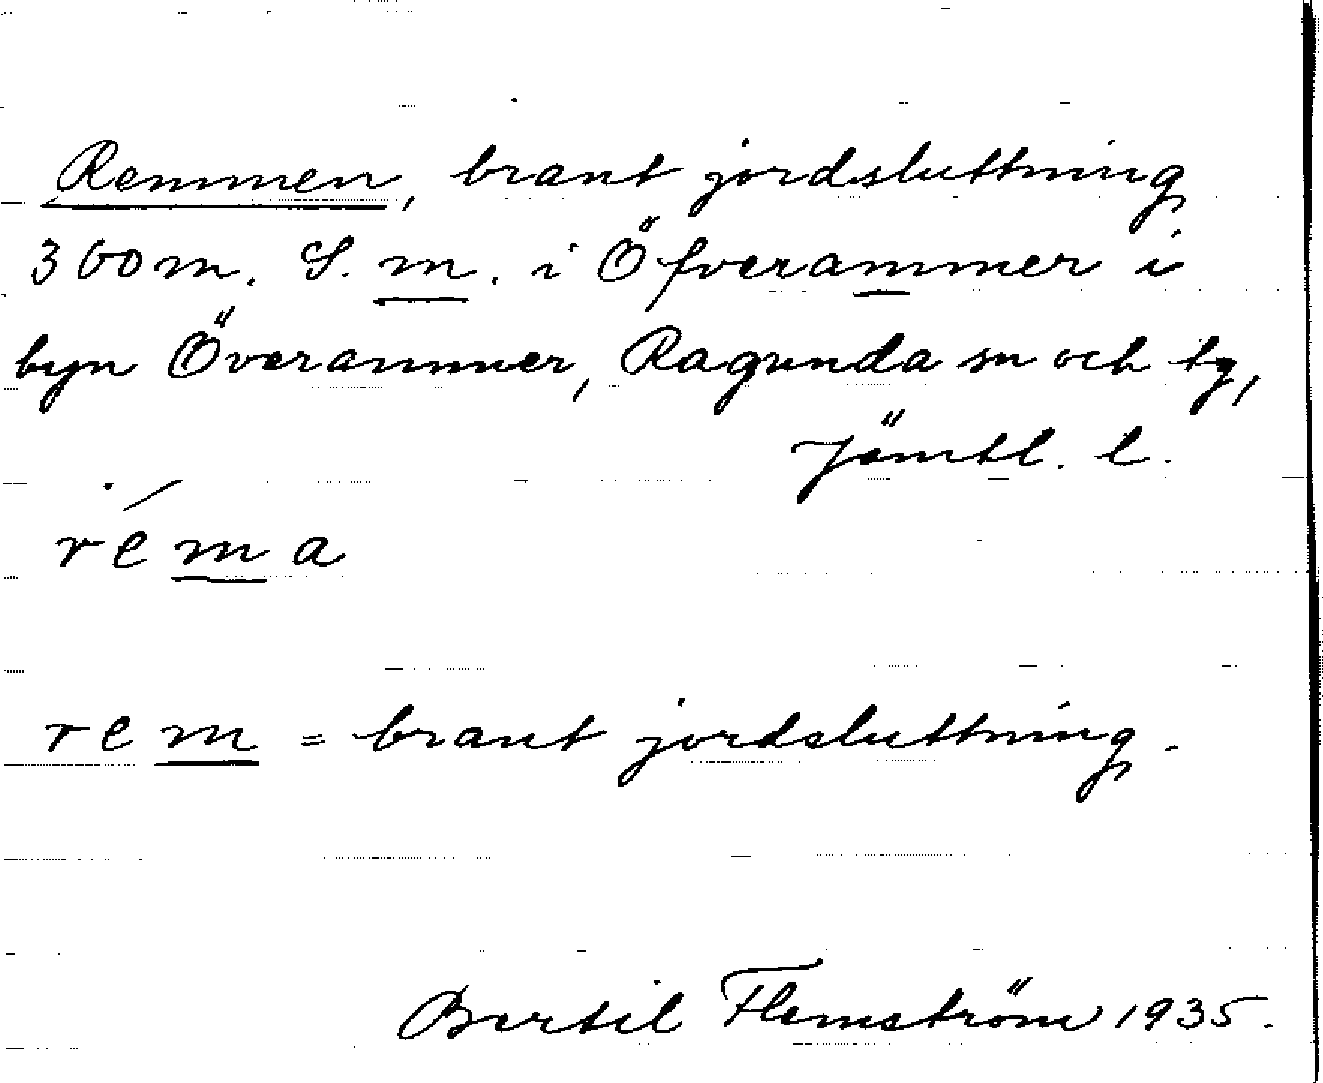 Remmen, brant jordsluttning
300m. S. m. i Öfverammer i
byn Överammer, Ragunda sn och tg,
Jämtl. l.
réma
rem = brant jordsluttning.
Bertil Flemström 1935.